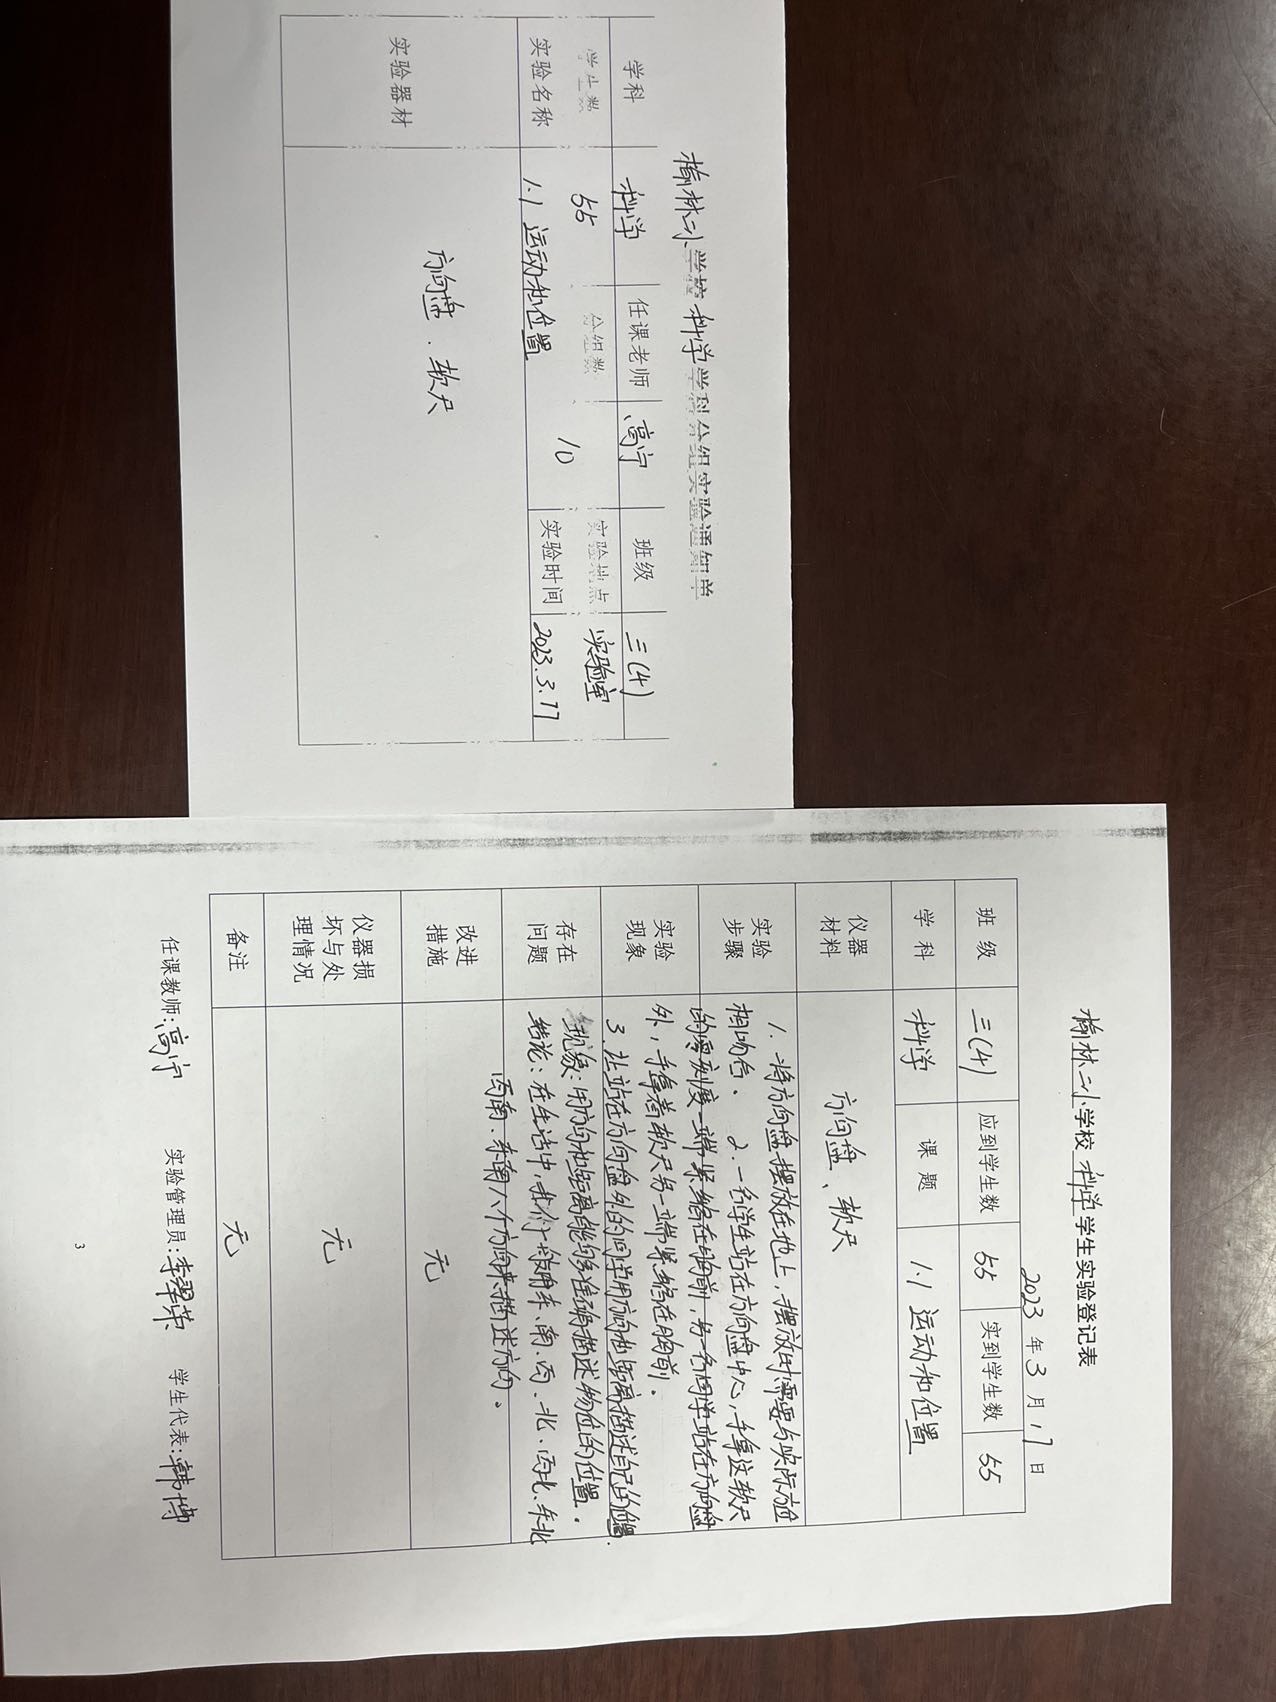 榆林二小学校科学学科分组实验通知单
学科 科学 任课老师 高宁 班级 三(4)
学生数 55 分组数 10 实验地点 实验室
实验名称 1.1 运动和位置 实验时间 2023.3.17
实验器材 方向盘、软尺
榆林二小学校科学学生实验登记表
2023年3月17日
班级 三(4) 应到学生数 55 实到学生数 55
学科 科学 课题 1.1 运动和位置
仪器材料 方向盘、软尺
实验步骤
实验现象
存在问题
1. 将方向盘摆放在地上,摆放时需要与实际方位
相吻合. 2. 一名学生站在方向盘中心,手拿这软尺
的零刻度一端紧缩在胸前,另一名同学站在方向盘
外,手拿着软尺另一端紧缩在胸前.
3. 让站在方向盘外的同学用方向和距离描述自己的位置.
现象:用方向和距离能够准确描述物位的位置.
结论:在生活中,我们一般用东、南、西、北、西北、东北
西南、东南八个方向来描述方向.
改进措施 无
仪器损坏与处理情况 无
备注 无
任课教师:高宁 实验管理员:李翠荣 学生代表:韩博
3